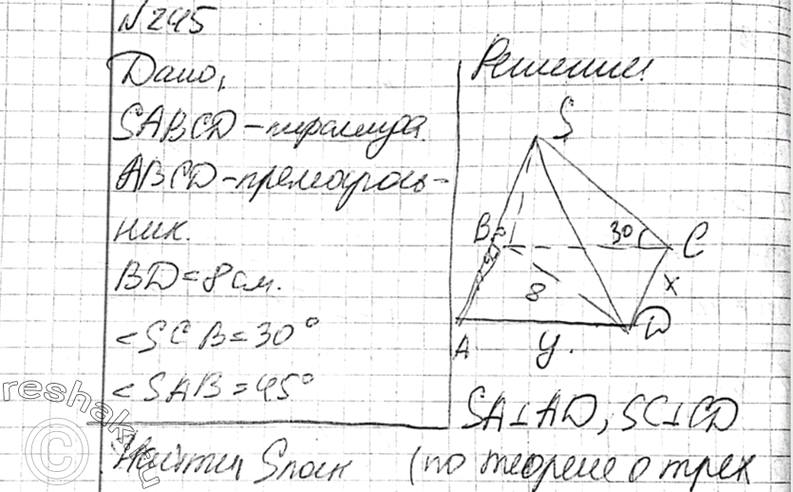 №245
Дано,
SABCD – пирамида.
ABCD – прямоуголь-
ник.
BD = 8 см.
∠SCB = 30°
∠SAB = 45°
Найти, Sпол
Решение.
S
B
30
C
8
x
A
D
y.
SA⊥AD, SC⊥CD
(по теореме о трех
reshak.ru
©